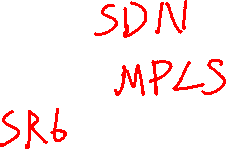 SDN
MPLS
SR6